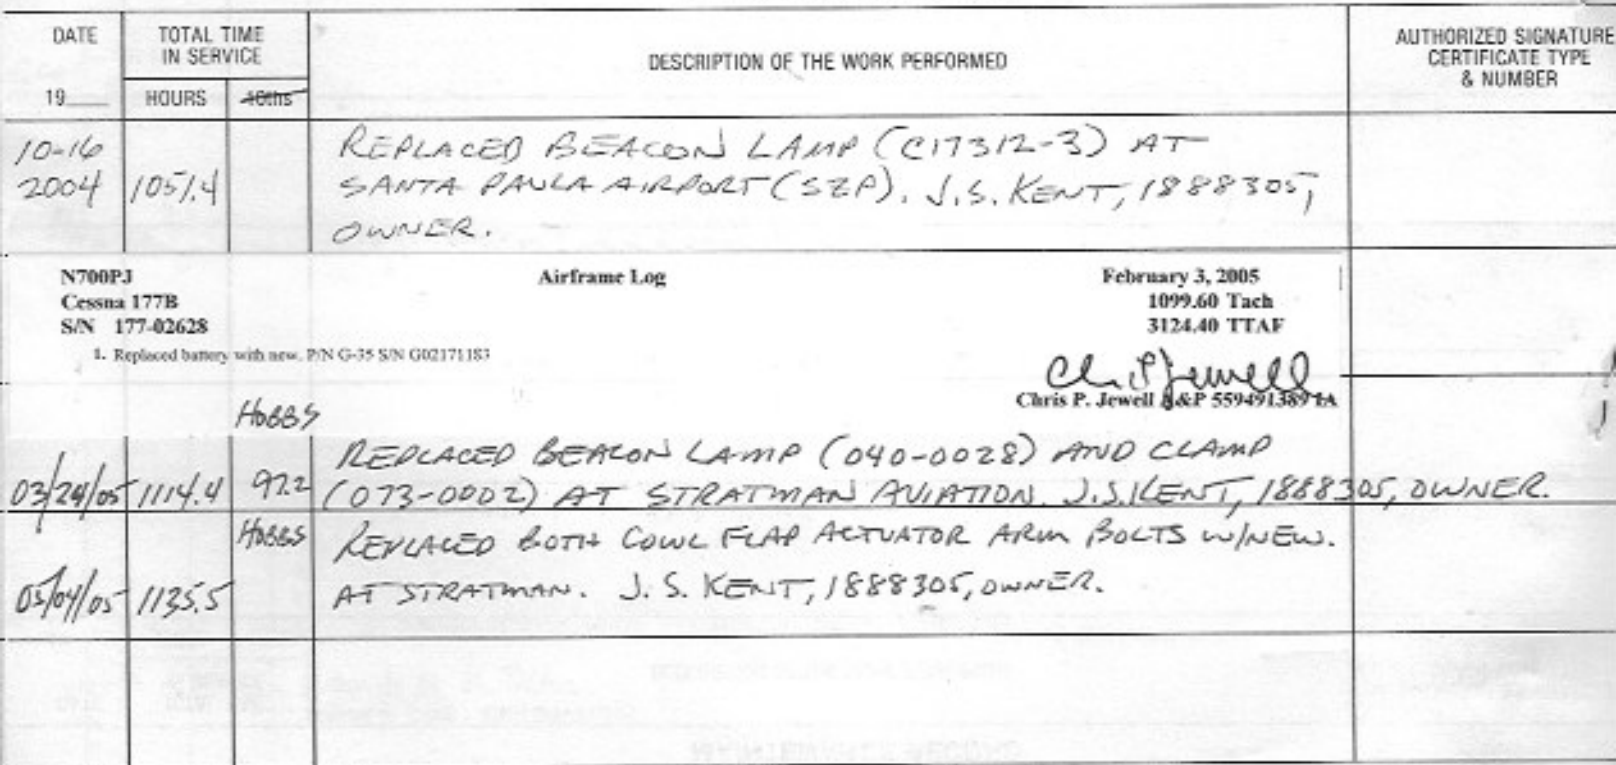 DATE
TOTAL TIME
IN SERVICE
DESCRIPTION OF THE WORK PERFORMED
AUTHORIZED SIGNATURE
CERTIFICATE TYPE
& NUMBER
19
HOURS
10ths
10-16
2004
1051.4
REPLACED BEACON LAMP (C17312-3) AT
SANTA PAULA AIRPORT (SZP). J.S. KENT, 1888305,
OWNER.
N700PJ
Cessna 177B
S/N 177-02628
Airframe Log
February 3, 2005
1099.60 Tach
3124.40 TTAF
1. Replaced battery with new. P/N G-35 S/N G02171183
Chris P. Jewell
Chris P. Jewell A&P 559491389 IA
HOBBS
03/24/05 1114.4 97.2 REPLACED BEACON LAMP (040-0028) AND CLAMP
(073-0002) AT STRATMAN AVIATION. J.S. KENT, 1888305, OWNER.
HOBBS
05/04/05 1135.5 REPLACED BOTH COWL FLAP ACTUATOR ARM BOLTS W/NEW.
AT STRATMAN. J. S. KENT, 1888305, OWNER.